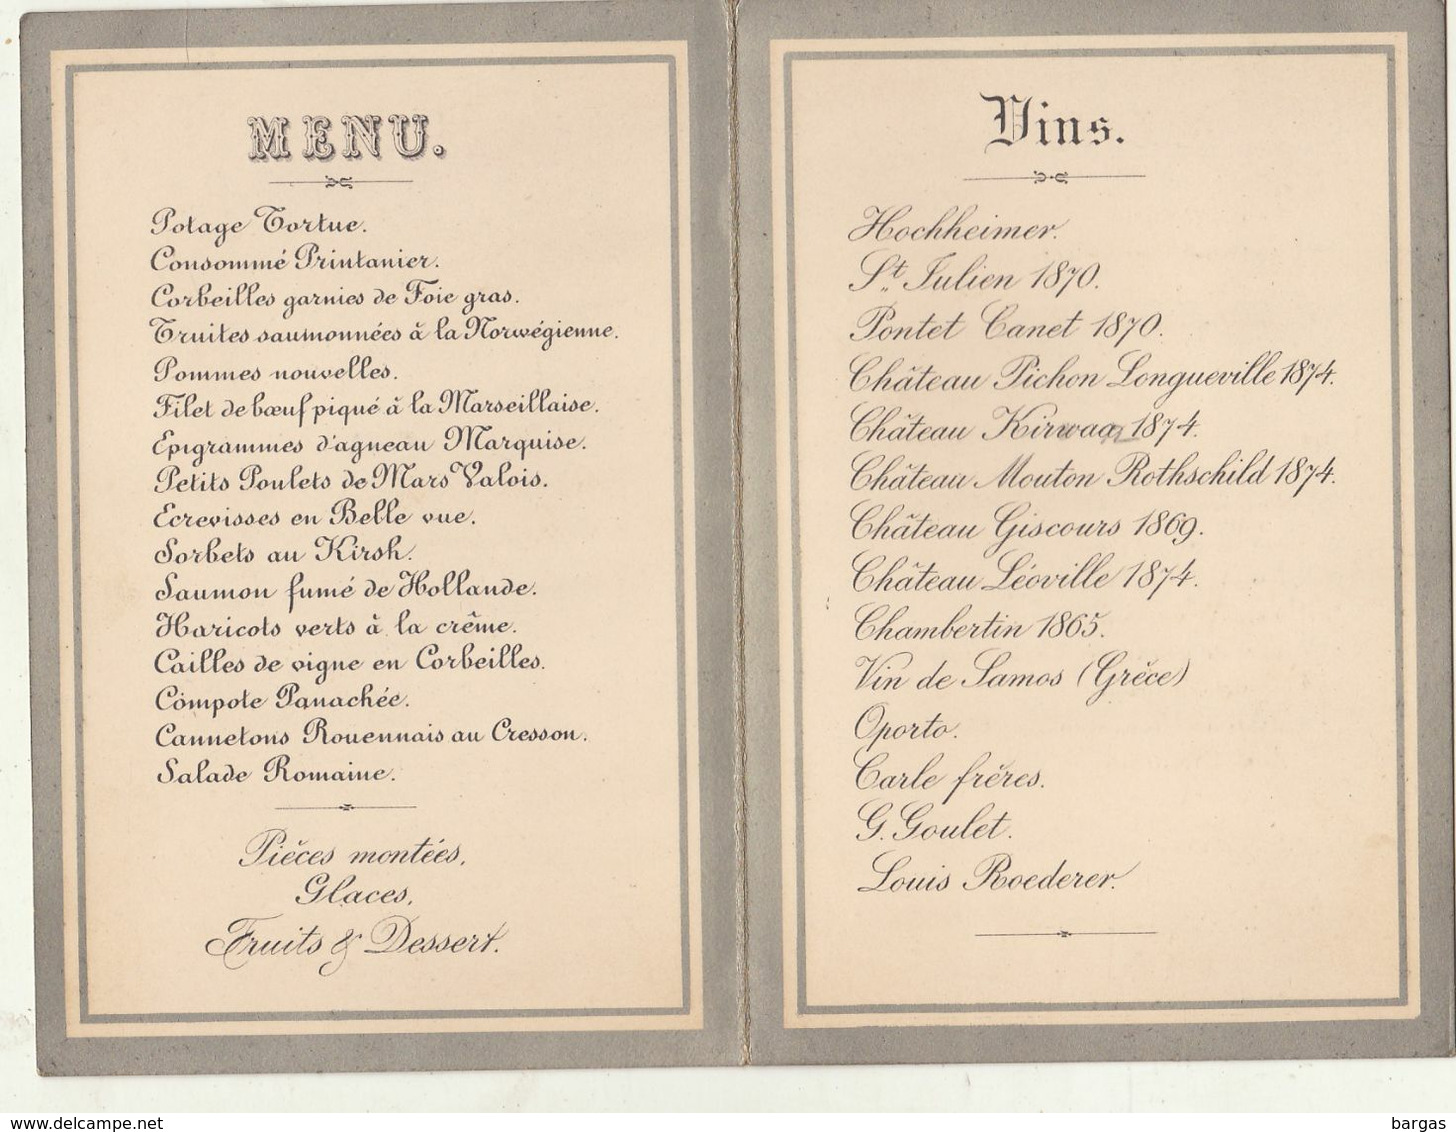 MENU.
Potage Tortue.
Consommé Printanier.
Corbeilles garnies de Foie gras.
Truites saumonnées à la Norwégienne.
Pommes nouvelles.
Filet de bœuf piqué à la Marseillaise.
Epigrammes d'agneau Marquise.
Petits Poulets de Mars Valois.
Ecrevisses en Belle vue.
Sorbets au Kirsh.
Saumon fumé de Hollande.
Haricots verts à la crême.
Cailles de vigne en Corbeilles.
Compote Panachée.
Cannetons Rouennais au Cresson.
Salade Romaine.
Pièces montées,
Glaces,
Fruits & Dessert.
Vins.
Hochheimer.
St. Julien 1870.
Pontet Canet 1870.
Château Pichon Longueville 1874.
Château 1874.
Château Mouton Rothschild 1874.
Château Giscours 1869.
Château Léoville 1874.
Chambertin 1865.
Vin de Samos (Grèce)
Oporto.
Carle frères.
G. Goulet.
Louis Roederer.
www.delcampe.net
bargas